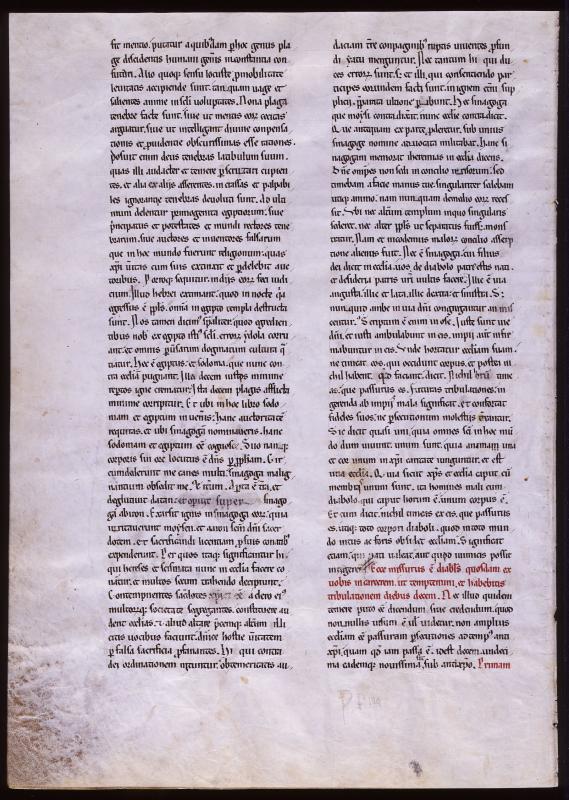 fit mentio. putatur a quibusdam per hoc genus pla
ge dissidentis humani generis inconstantia con
futari. Alio quoque sensu locuste pro mobilitate
levitatis accipiende sunt. tanquam vage et
salientes anime in seculi voluptates. Nona plaga
tenebre facte sunt. sive ut mentis eorum cecitas
arguatur. sive ut intelligant divine dispensa
tionis et prudentie obscurissimas esse rationes.
posuit enim deus tenebras latibulum suum.
quas illi audacter et temere perscrutari cupien
tes. et alia ex aliis asserentes. in crassas et palpabi
les ignorantie tenebras devoluti sunt. Ad ulti
mum delentur primogenita egiptiorum. sive
principatus et potestates et mundi rectores tene
brarum. sive auctores et inventores falsarum
que in hoc mundo fuerunt religionum. quas
xpi veritas cum suis extinxit et delebit auc
toribus. Per
cium. Illud hebrei extimant. quod in nocte qua
egressus est populus. omnia in egipto templa destructa
sunt. Nos tamen dicimus spiritaliter. quod egredien
tibus nobis ex egipto isti seculi. errorum idola corru
ant. et omnis perversarum dogmatum cultura qua
tiatur. Hec est egiptus. et sodoma. que nunc con
tra ecclesiam pugnant. Ista decem iustissime
reatus igne crematur. Ista decem plagis afflicta
minime corripitur. Et ubi in hoc libro sodo
mam et egiptum inveneris. hanc auctoritatem
requiras. et ubi sinagoga nominaveris. hanc
sodomam et egiptum esse cognosce. Suo namque
corporis sui ore locutus est dominus per prophetam. Cir
cumdederunt me canes multi. sinagoga malig
nantium obsedit me. Et iterum. Aperta est terra. et
deglutivit datan. et operuit super sinago
ga abiron. Exarsit ignis in sinagoga eorum. quia
irritaverunt moysen. et aaron sanctum domini sacer
dotem. et sacrificandi licentiam. pravis conatibus
expenderunt. Per quos itaque significantur hi.
qui hereses et scismata nunc in ecclesia facere co
nantur. et multos secum trahendo decipiunt.
Contemptentes sacerdotes xpi a dero eius
multorumque societate segregantes. constituere au
dent ecclesias. et aliud altare precemque alteram illi
citis vocibus faciunt. dominice hostie veritatem
per falsa sacrificia profanantes. Hi qui contra
dei ordinationem nituntur. ob temeritatis au
daciam terre compaginibus ruptis viventes profun
di hyatu merguntur. Nec tantum hi qui du
ces erroris sunt. sed et illi qui consentiendo par
ticipes eorumdem facti sunt. in ignem cum sup
plicii. parata ultione peribunt. Hec sinagoga
que moysi contradixit. nunc ecclesie contradicit.
Que antequam ex parte proderetur. sub unius
sinagoge nomine advocata militabat. hanc si
nagogam memorat iheremias in ecclesia dicens.
Domine omnipotens non sedi in concilio irrisorum. sed
timebam a facie manus tue. singulariter sedebam
utique animo. nam nunquam de medio eorum reces
sit. Ubi nec alterum templum in quo singularis
sederet. nec alter populus ut separatus fuisset mons
tratur. Nam et nicodemus malorum concilio asserip
tione alienus fuit. Nec est sinagoga cui filius
dei dicit in ecclesia. vos. de diabolo patre estis nati.
et desideria patris vestri vultis facere. Hec est via
angusta. illec et lata. illec dextra. et sinistra. Si
nunquid ambe in via domini congregantur an
centur. Scriptum est enim in ose. Iuste sunt vie
domini. et iusti ambulabunt in eis. impii autem infir
mabuntur in eis. Unde hortatur ecclesiam suam.
ne timeat eos. qui occidunt corpus. et postea ni
chil habent. quid faciant. dicit. Nichil horum time
as. que passurus es. Futuras tribulationes. in
gerenda ab impiis mala significat. et confortat
fideles suos. ne persecutionum molestiis
Sic dicit quasi uni. quia omnes sancti in hoc mun
do dum vivunt. unum sunt. quia animam una
et cor unum in xpi caritate iunguntur. et est
una ecclesia. Quia sicut xps et ecclesia caput cum
membris unum sunt. ita homines mali cum
diabolo qui caput horum est. unum corpus est.
Et cum dicit. nichil timeas ex eis. que passurus
es. utique toto corpori diaboli. quod in toto mun
do intus ac foris obsidet ecclesiam. Significat
etiam. qui nati valeat. aut quid inimicus possit
ingerere. Ecce missurus est diabolus quosdam ex
vobis in carcerem. ut temptemini. et habebitis
tribulationem diebus decem. Nec illud quidem
temere puto esse dicendum. sive credendum. quod
non nullis visum est vel videatur. non amplius
ecclesiam esse passuram persecutiones ad tempus anti
xpi. quam quod iam passa est. id est decem. undeci
ma eademque novissima. sub antixpo. Primam